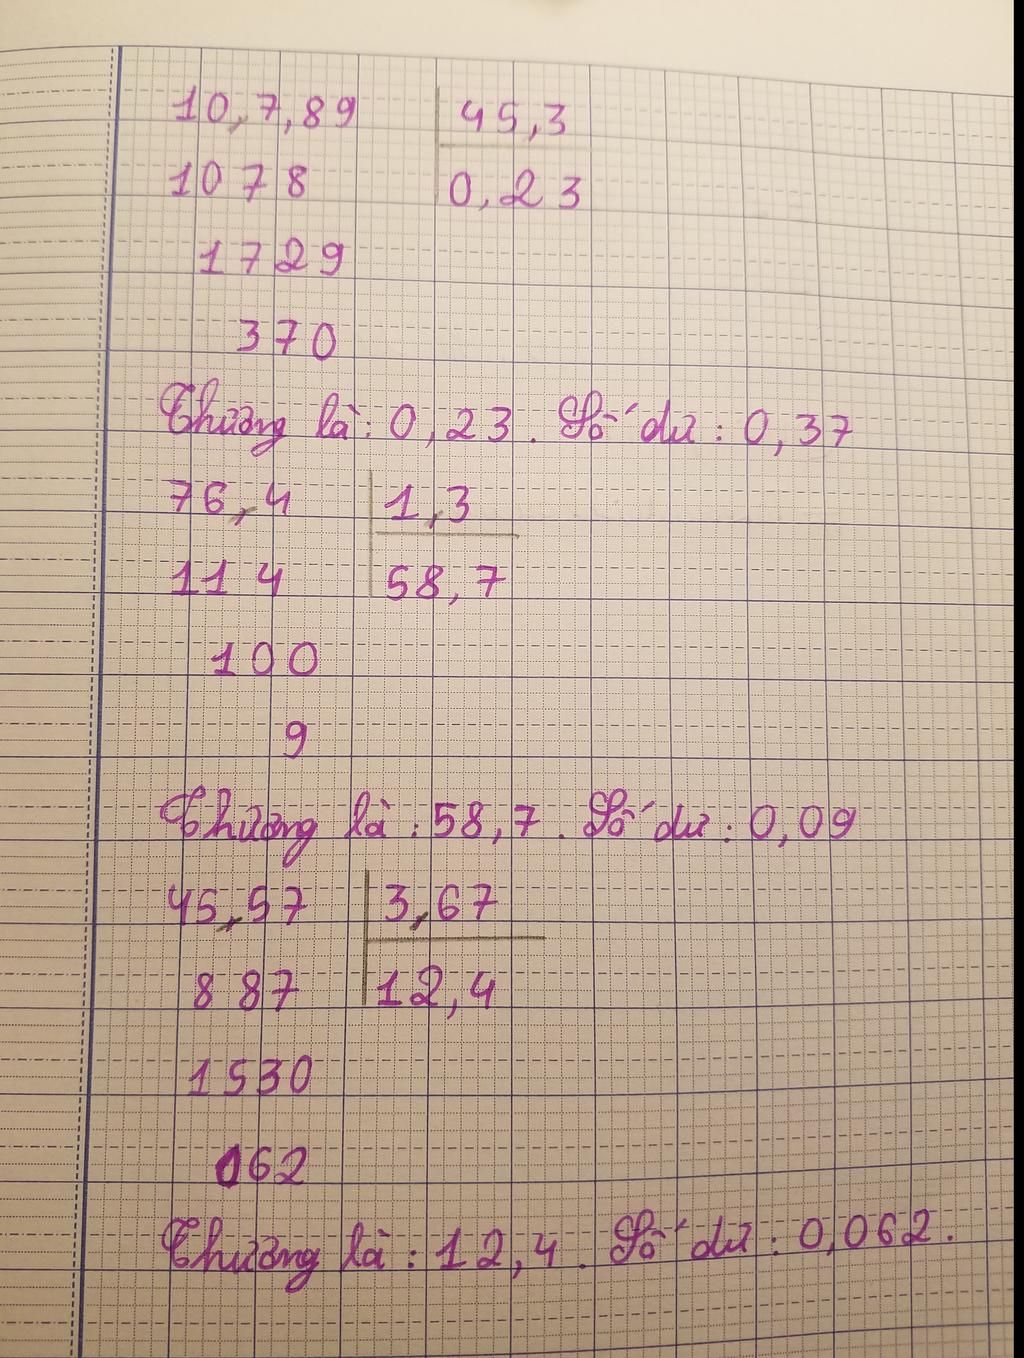 10,7,89 45,3
1078 0,23
1729
370
Thương là: 0,23. Số dư: 0,37
76,4 1,3
114 58,7
100
9
Thương là: 58,7. Số dư: 0,09
45,57 3,67
887 12,4
1530
062
Thương là: 12,4. Số dư: 0,062.